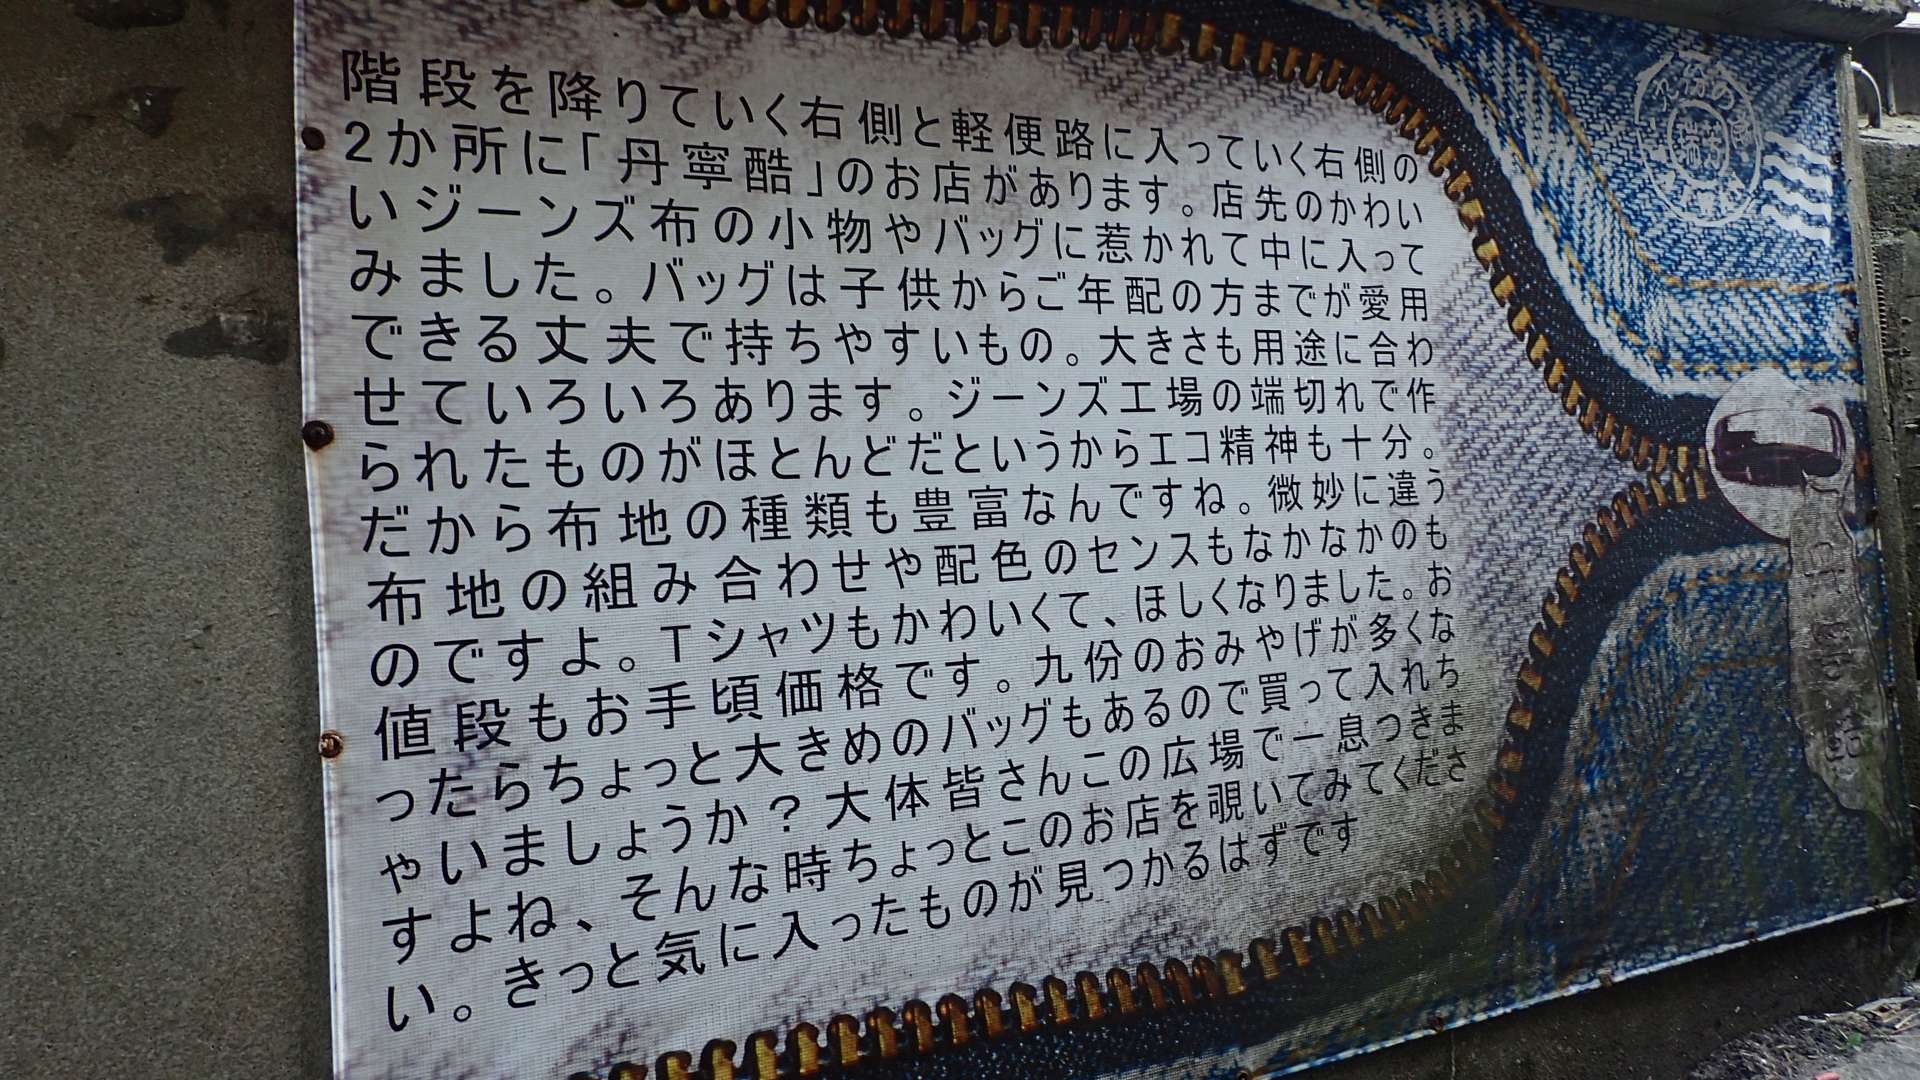 階段を降りていく右側と軽便路に入っていく右側の
2か所に「丹寧酷」のお店があります。店先のかわい
いジーンズ布の小物やバッグに惹かれて中に入って
みました。バッグは子供からご年配の方までが愛用
できる丈夫で持ちやすいもの。大きさも用途に合わ
せていろいろあります。ジーンズ工場の端切れで作
られたものがほとんどだというからエコ精神も十分。
だから布地の種類も豊富なんですね。微妙に違う
布地の組み合わせや配色のセンスもなかなかのも
のですよ。Tシャツもかわいくて、ほしくなりました。お
値段もお手頃価格です。九份のおみやげが多くな
ったらちょっと大きめのバッグもあるので買って入れち
ゃいましょうか?大体皆さんこの広場で一息つきま
すよね、そんな時ちょっとこのお店を覗いてみてくださ
い。きっと気に入ったものが見つかるはずです